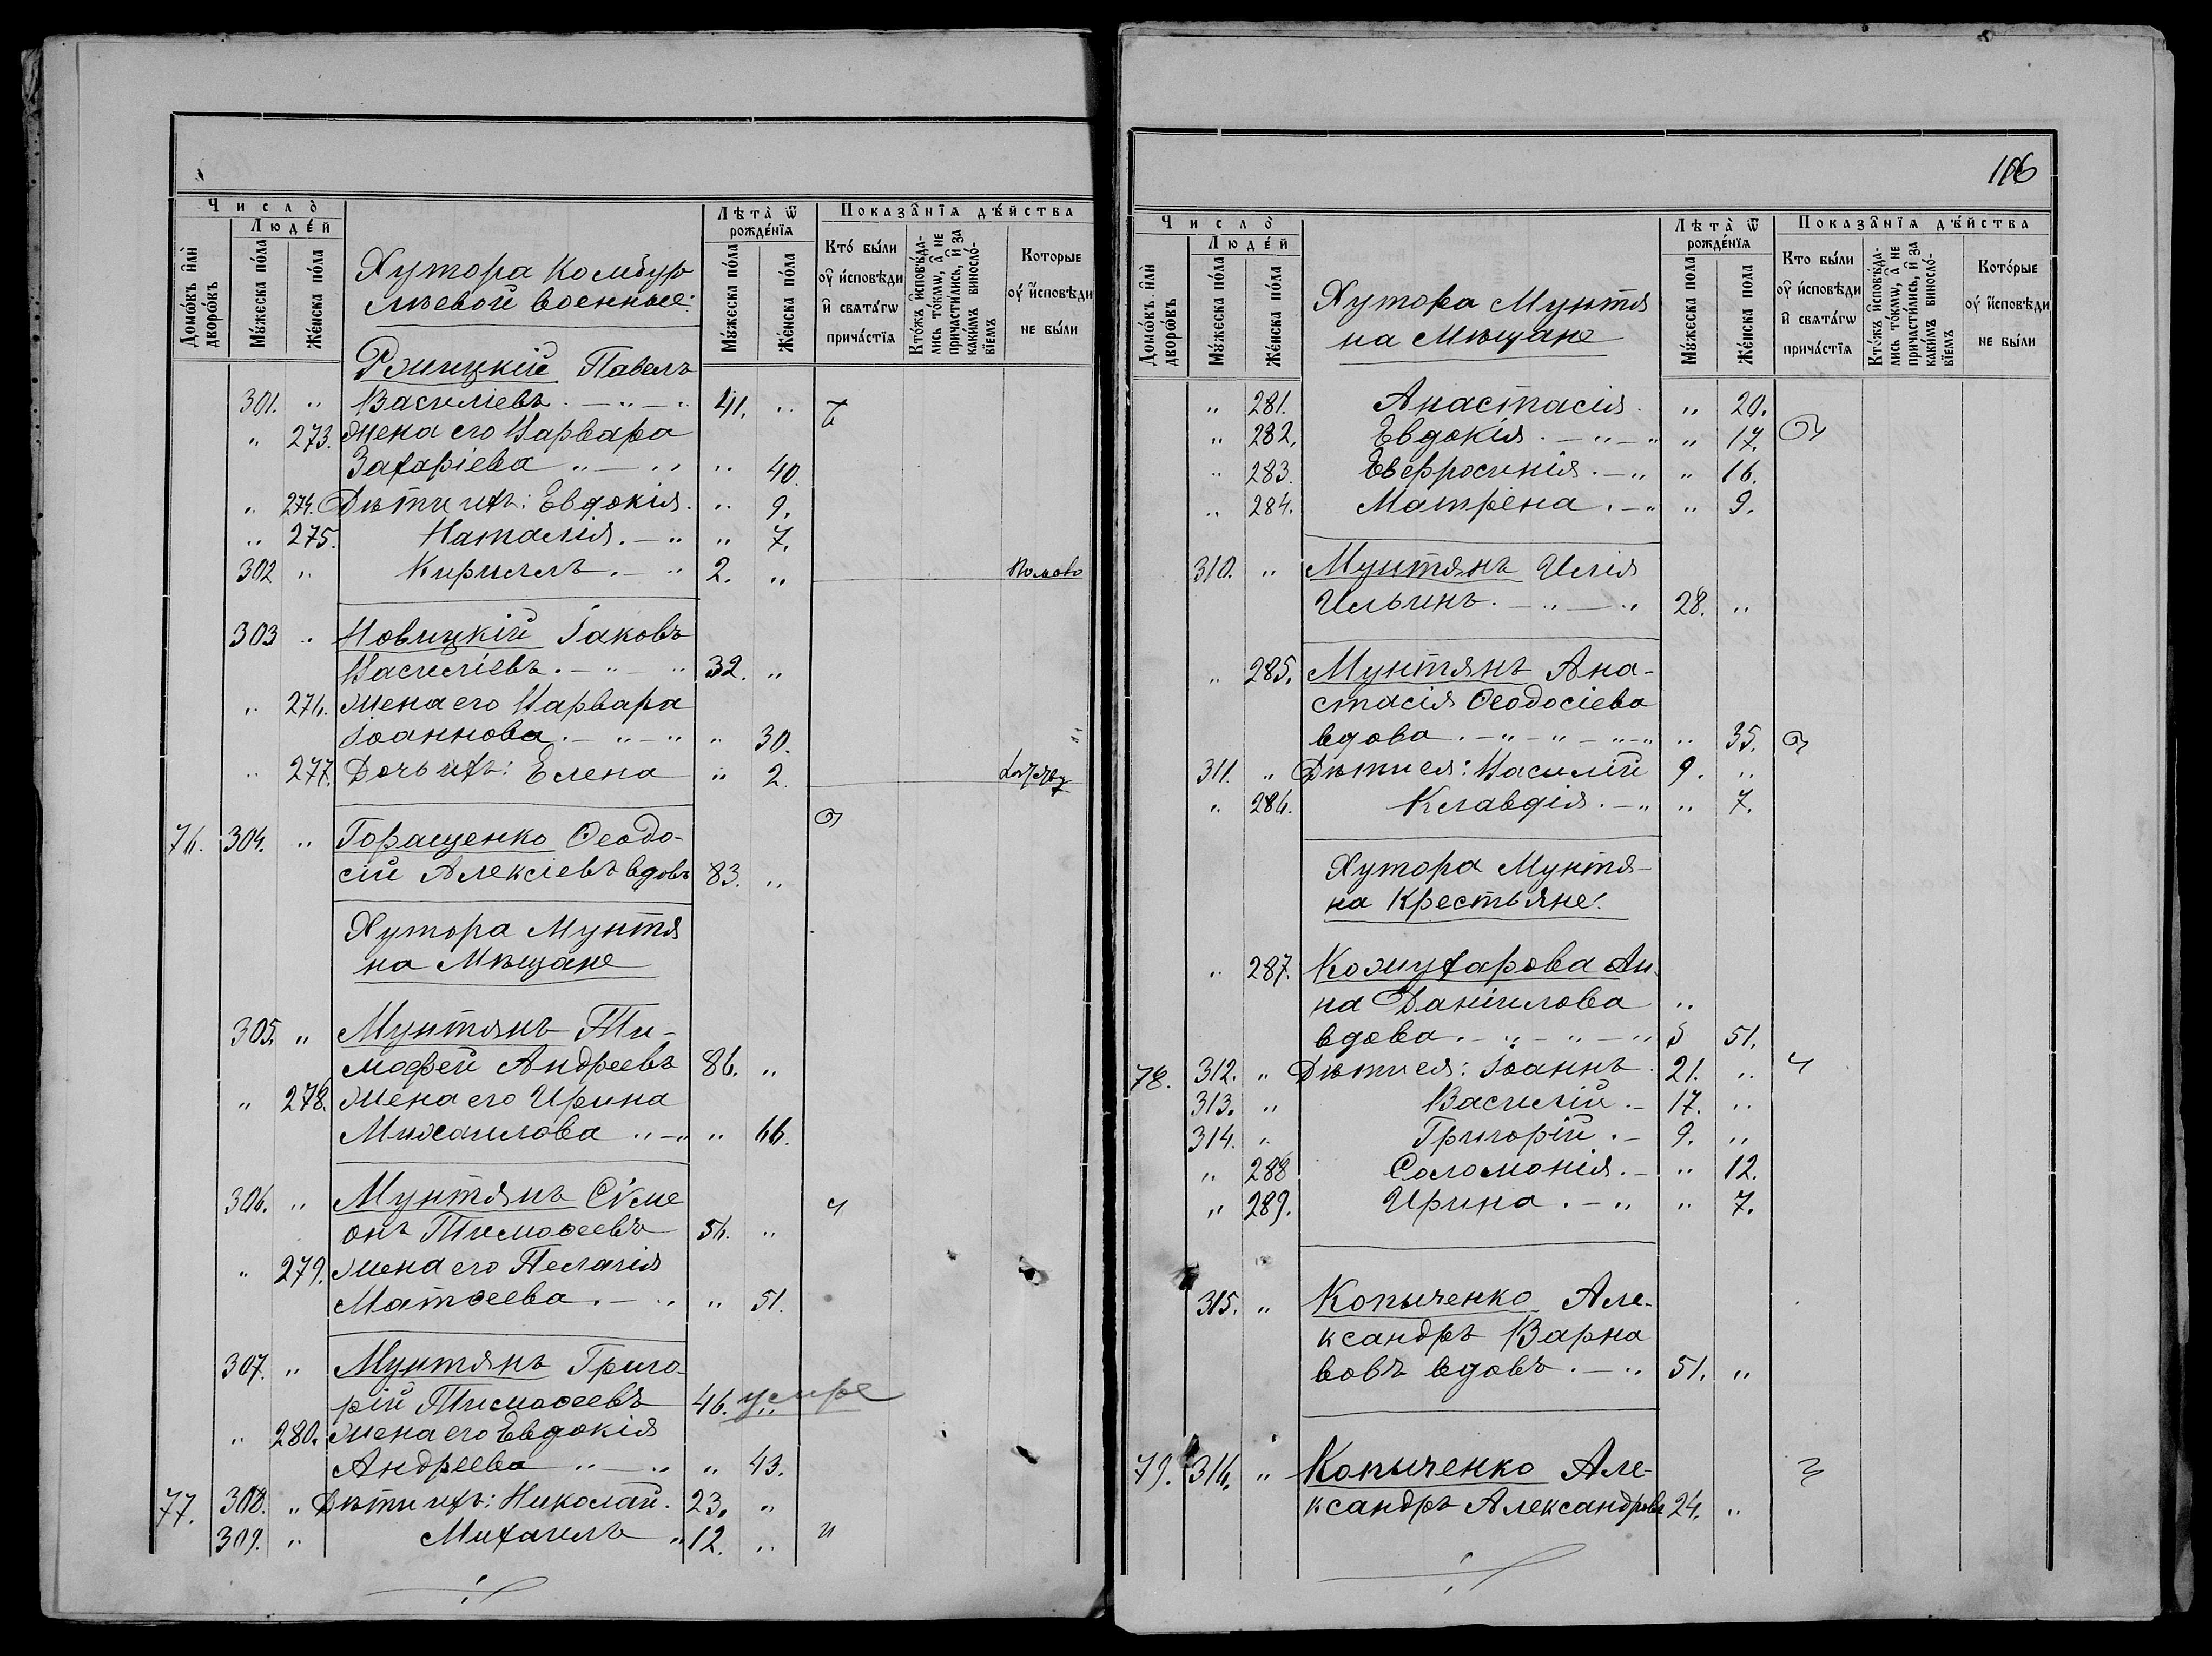 Число̀
Людéй
Домѡ́въ и҆лѝ дворѡ́въ
Мꙋ́жеска по́ла
Же́нска по́ла
Лѣта̀ ѿ рожде́нїѧ
Мꙋ́жеска по́ла
Же́нска по́ла
Показа̑нїѧ дѣ́йства
Кто́ бы́ли оу҆ и҆сповѣ́ди и҆ свѧта́гѡ прича́стїѧ
Кто́жъ и҆сповѣ́дались то́кмѡ, а҆ не причасти́лись, и҆ за каки́мъ виносло́вїемъ
Которые оу҆ и҆сповѣ́ди не бы́ли
Хутора Комбур
лѣевой военные:
Павелъ
301. " Василіевъ . — " — " 41. "
" 273. Жена его Варвара
Захаріева " — " " 40.
" 274. Дѣти ихъ: Евдокія. " 9.
" 275. Наталія. — " " 7.
302 " Кириллъ. — " 2. "
303 " Новицкій Іаковъ
Василіевъ. — " — " 32. "
" 276. Жена его Варвара
Іоаннова. — " — " " 30.
" 277. Дочь ихъ: Елена " 2.
76. 304. " Горащенко Ѳеодо-
сій Алексіевъ вдовъ 83. "
Хутора Мунтя
на Мѣщане
305. " Мунтянъ Ти-
мофей Андреевъ 86. "
" 278. Жена его Ирина
Михаилова " — " " 66.
306. " Мунтянъ Сѵме
онъ Тимоѳеевъ 56. "
" 279. Жена его Пелагія
Матѳеева. — " " 51.
307. " Мунтянъ Григо-
рій Тимоѳеевъ 46. " умре
" 280. Жена его Евдокія
Андреева " — " " 43.
77. 308. " Дѣти ихъ: Николай. 23. "
309. " Михаилъ " 12. "
106
Число̀
Людéй
Домѡ́въ и҆лѝ дворѡ́въ
Мꙋ́жеска по́ла
Же́нска по́ла
Лѣта̀ ѿ рожде́нїѧ
Мꙋ́жеска пола
Же́нска пола
Показа̑нїѧ дѣ́йства
Кто бы́ли оу҆ и҆сповѣ́ди и҆ свѧта́гѡ прича́стїѧ
Кто́жъ и҆сповѣ́дались то́кмѡ, а҆ не причасти́лись, и҆ за каки́мъ виносло́вїемъ
Кото́рые оу҆ и҆сповѣ́ди не бы́ли
Хутора Мунтя
на Мѣщане
" 281. Анастасія. " 20.
" 282. Евдокія. — " — " " 17.
" 283. Евфросинія. — " " 16.
" 284. Матрена. — " " 9.
310. " Мунтянъ Илія
Ильинъ. — " — " 28. "
" 285. Мунтянъ Ана-
стасія Ѳеодосіева
вдова. — " — " — " — " " 35.
311. " Дѣти ея: Василій 9. "
" 286. Клавдія. — " " 7.
Хутора Мунтя-
на Крестьяне.
" 287. Кожухарова Ан-
на Даніилова "
вдова. — " — " — " 51.
78. 312. " Дѣти ея: Іоаннъ. 21. "
313. " Василій. — 17. "
314. " Григорій. — 9. "
" 288 Соломонія. — " 12.
" 289. Ирина. — " " 7.
315. " Копыченко Але-
ксандръ Варна
вовъ вдовъ. — " 51. "
79. 316. " Копыченко Але-
ксандръ Александровъ 24. "